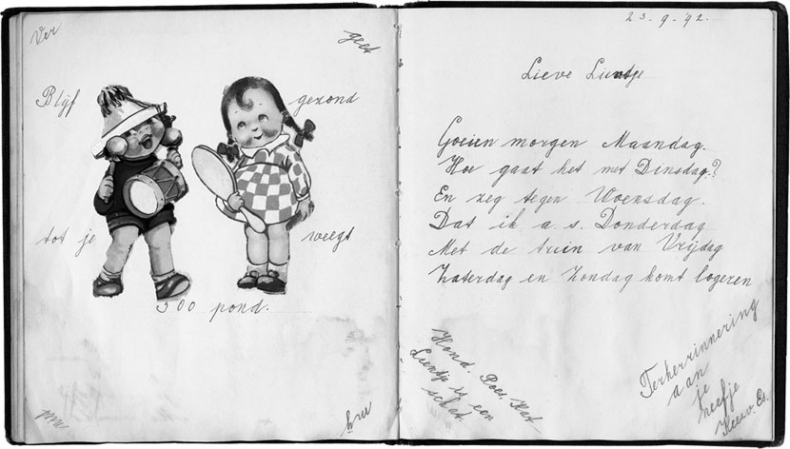 Ver geet
Blijf gezond
tot je weegt
300 pond.
mij
23.9.'42.
Lieve Lientje
Goeien morgen Maandag.
Hoe gaat het met Dinsdag?
En zeg tegen Woensdag.
Dat ik a.s. Donderdag
Met de trein van Vrijdag
Zaterdag en Zondag komt logeren
Hond. Poes. Kat-
Lientje is een
schat.
Terherrinnering
aan
je
neefje